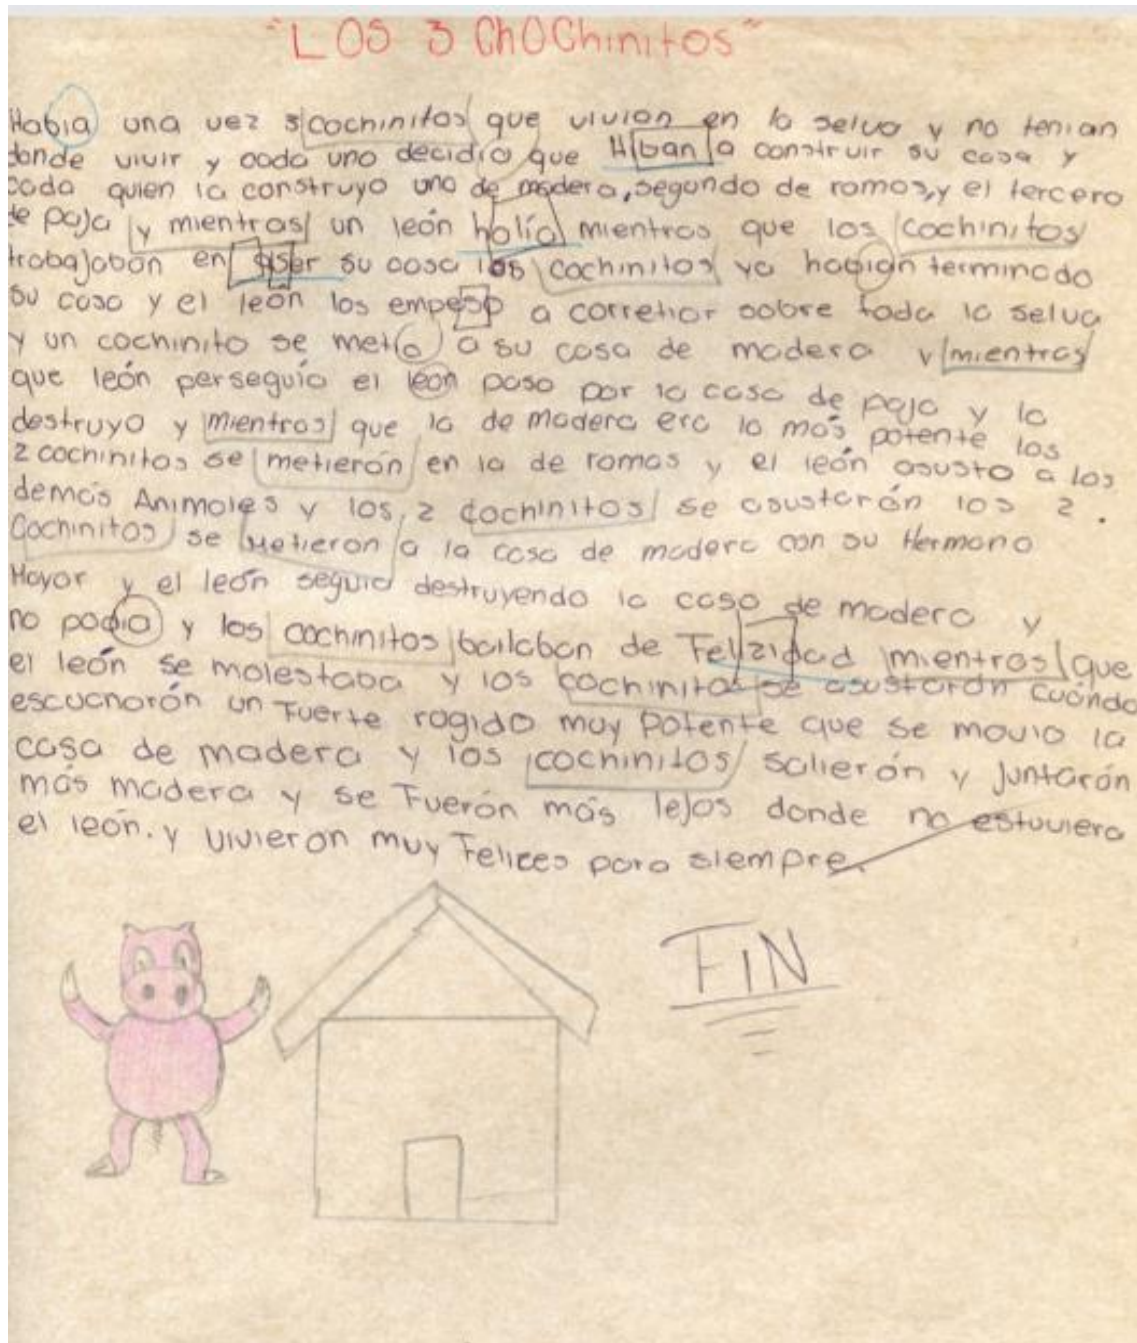 "LOS 3 ChOChinitos"
Habia una vez 3 cochinitos que vivian en la selva y no tenian
donde vivir y cada uno decidio que Hiban a construir su casa y
cada quien la construyo uno de madera, segundo de ramas, y el tercero
de paja y mientras un león holía mientras que los cochinitos
trabajabán en aser su casa los cochinitos ya habian terminado
su casa y el león los empeso a corretiar sobre toda la selva
y un cochinito se metio a su casa de madera y mientras
que león perseguia el leon paso por la casa de paja y la
destruyo y mientras que la de madera era la más potente los
2 cochinitos se metierón en la de ramas y el león asusto a los
demás Animales y los 2 cochinitos se asustarón los 2.
Cochinitos se metieron a la casa de madera con su Hermano
Mayor y el león seguia destruyendo la casa de madera y
no podia y los cochinitos bailaban de Felizidad mientras que
el león se molestaba y los cochinitos se asustarón cuándo
escucharón un Fuerte rogido muy Potente que se movio la
casa de madera y los cochinitos salierón y juntarón
más madera y se Fuerón más lejos donde no estuviera
el león. y vivieron muy Felices para siempre.
FIN